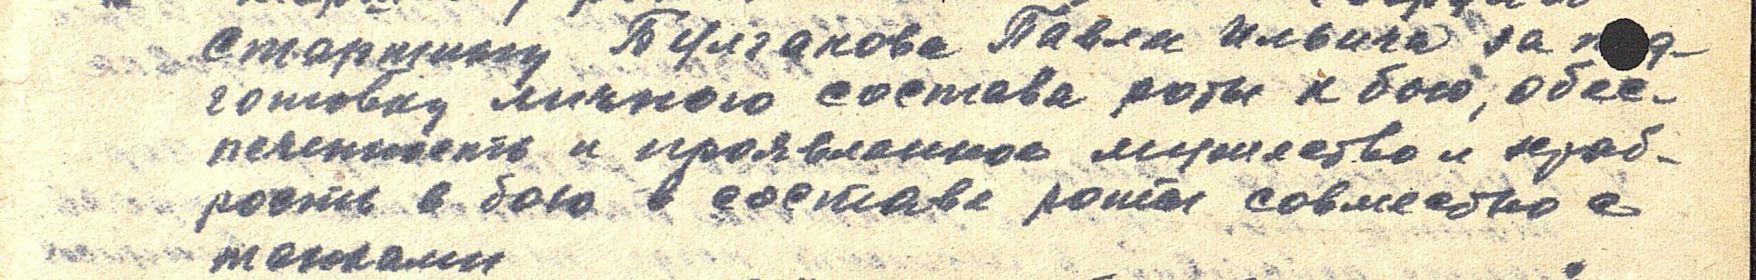 старшину Булгакова Павла Ильича за под-
готовку личного состава роты к бою, обес-
печенность и проявленное мужество и храб-
рость в бою в составе роты совместно с
танками